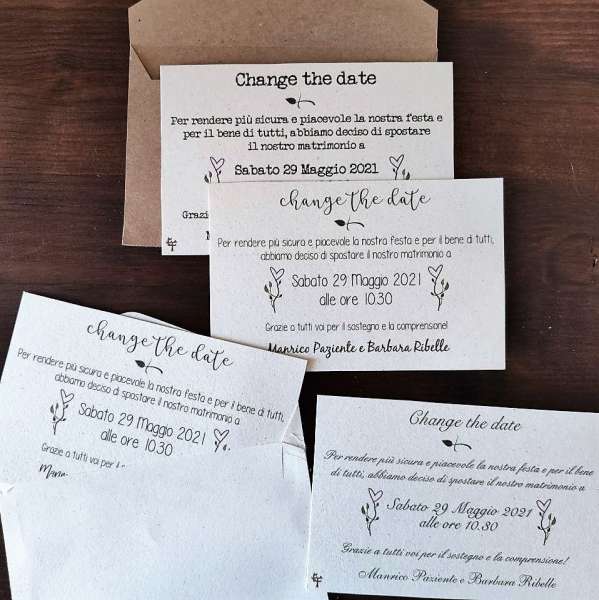 Change the date
Per rendere più sicura e piacevole la nostra festa e
per il bene di tutti, abbiamo deciso di spostare
il nostro matrimonio a
Sabato 29 Maggio 2021
change the date
Per rendere più sicura e piacevole la nostra festa e per il bene di tutti,
abbiamo deciso di spostare il nostro matrimonio a
Sabato 29 Maggio 2021
alle ore 10.30
Grazie a tutti voi per il sostegno e la comprensione!
Manrico Paziente e Barbara Ribelle
change the date
Per rendere più sicura e piacevole la nostra festa e per il bene di tutti,
abbiamo deciso di spostare il nostro matrimonio a
Sabato 29 Maggio 2021
alle ore 10.30
Grazie a tutti voi per
Change the date
Per rendere più sicura e piacevole la nostra festa e per il bene
di tutti, abbiamo deciso di spostare il nostro matrimonio a
Sabato 29 Maggio 2021
alle ore 10.30
Grazie a tutti voi per il sostegno e la comprensione!
Manrico Paziente e Barbara Ribelle